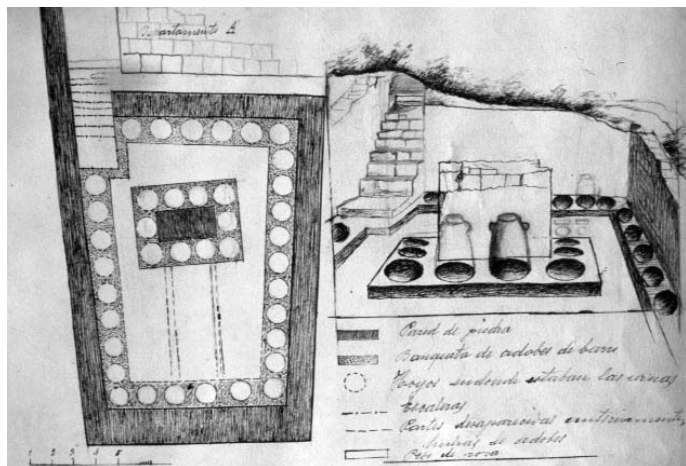 Departamento A
Pared de piedra
Banqueta de adobes de barro
Hoyos endonde estaban las urnas
Escaleras
Partes desaparecidas enteramente,
de adobes
Piso de roca
1 2 3 4 5